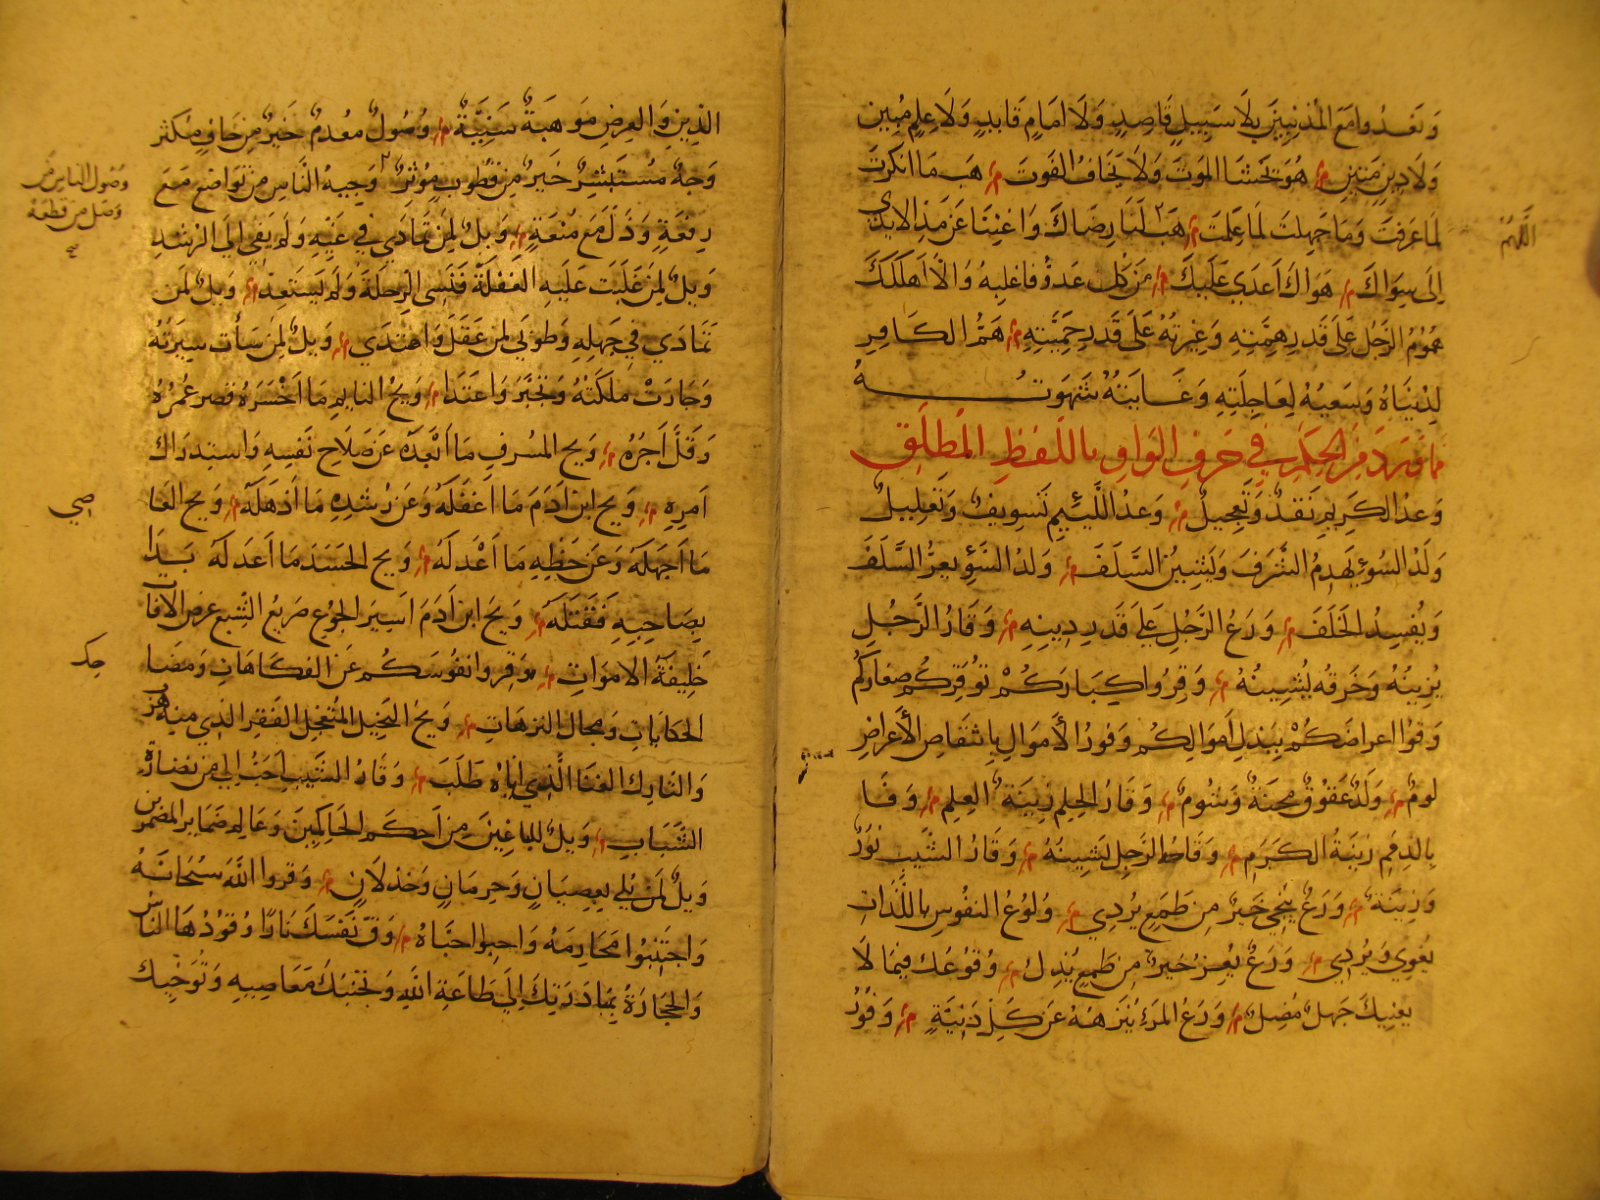 وَتعَدوا مَعَ المذنِبِيْنَ بِلَا سَبِيلٍ قَاصِدٍ وَلَا اِمَامٍ قَابدٍ وَلَا عِلمٍ مُبِين
وَلَا دِينٍ مَتِينٍ هُوَ يَخشَا المَوتَ وَلَا يَخَافُ الفَوتَ هَب مَا انكَرتَ
لمَا عَرفتَ وَمَا جَهِلتَ لمَا عَلِمتَ هَب لَنَا رِضَاكَ وَاغنِنَا عَن مَدِّ الايدِي
اِلى سِوَاكَ هَوَاكَ اَعدَى عَلَيكَ مِن كُل عَدوٍّ فاغلِبهُ وَالّا اَهلَكَكَ
هُمُومُ الرَّجُل عَلى قَدرِ هِمَّتِهِ وَغِيرَتُهُ عَلى قَدرِ حَمِيَّتِهِ هَمُّ الكَافِرِ
لِدُنيَاهُ وَسَعيُهُ لِعَاجِلَتِهِ وَغَايَتُهُ شَهوَتُهُ
مما وَرَدَ مِنَ الحِكَمِ في حَرفِ الوَاوِ بِاللَّفظِ المُطلَقِ
وَعدُ الكَرِيمِ نَقدٌ وَتَعجِيلٌ وَعدُ اللَّئِيمِ تَسوِيفٌ وَتَعلِيلٌ
وَلَدُ السُّوءِ يَهدِمُ الشَّرَفَ وَيُشِينُ السَّلَفَ وَلدُ السُّوءِ يعرُّ السَّلَفَ
وَيُفسِدُ الخَلَفَ وَرَعُ الرَّجُلِ عَلى قَدرِ دِينِهِ وَقَارُ الرَّجُلِ
يُزِينُهُ وَخُرقُه يُشِينُهُ وَقِرُوا كِبَارَكُمْ تُوَقِرُكُم صِغَارُكُم
وَقُوا اعراضَكُمْ بِبَذلِ اَموَالِكُم وَفورُ الأموَالِ بِانتقَاصِ الأعرَاضِ
لومٌ وَلَدٌ عَقُوقٌ مِحنَةٌ وَشُومٌ وَقَارُ الحِلمِ زِينَةُ العِلمِ وَفَا
بِالذِممِ زِينَةُ الكَرَمِ وَقَاحة الرَّجِلِ تَشِينُهُ وَقَارُ الشَّيبِ نُورٌ
وَزِينَةٌ وَرَعٌ يُنجِي خَيرٌ مِن طَمَعٍ يُردِي وُلوُعُ النفُوسِ بِاللَّذَاتِ
يُغوِي وَيُردِي وَرَعٌ يُعِزُّ خَيرٌ مِن طَمعٍ يُذِلُ وُقوُعُكَ فِيمَا لَا
يَعنِيكَ جَهلٌ مُضِلٌ وَرَعُ المَرءِ يُنَزِّهُهُ عَن كُلِّ دَنِيَّةٍ وَفُورُ
اللَّهُمَّ
الدِّينِ وَالعِرضِ مَوهِبَةٌ سَنِيَّةٌ وُصُولٌ مُعدِمٌ خَيرٌ مِن جَافٍ مُكثِر
وَجهٌ مُستَبشِرٌ خَيرٌ مِن قَطُوبٍ مُوثِرٍ وَجِيهُ النَّاسِ مِن تَوَاضَعَ مَعَ
رِفعَةٍ وَذَلَّ مَع مَنعَةٍ وَيلٌ لِمَن تَمَادَى في غَيِّهِ وَلَم يَفِي اِلَى الرّشدِ
وَيلٌ لِمَن غَلَبَت عَلَيهِ الغَفلَةُ فَنَسِيَ الرِحلَةَ وَلَم يَستَعِدَّ وَيلٌ لمَن
تَمَادَى في جَهلِهِ وَطُوبَى لِمَن عَقَلَ وَاهتَدَى وَيلٌ لِمَن سَأَت سِيرَتُهُ
وَجَارَتْ ملَكَتُهُ وَتجَبَّرَ وَاعتَدَا وَيحُ النايِمِ مَا اَخسَرَهُ قصر عُمرُهُ
وَقَلَّ اَجرُهُ وَيح المُسرِفِ مَا اَبْعَدَهُ عَن صَلَاحِ نَفسِهِ وَاستِدرَاكَ
اَمرِهِ وَيح ابن اَدَمَ مَا اَغفَلَهُ وَعَن رُشدِهِ مَا اَذهَلَهُ وَيح العَا
مَا اَجهَلَهُ وَعَن حَظِّهِ مَا اَعْدَلَهُ وَيح الحَسَد مَا اَعدَلَهُ بَدَا
بِصَاحِبِهِ فَقَتَلَهُ وَيحَ ابن اَدَمَ اَسِيرَ الجُوعِ صَرِيعُ الشِّبَعِ عرض الافَات
خَلِيفَةُ الاموَاتِ وَقِروا نفُوسَكُم عَن الفكَاهَاتِ وَمضَا
الحكَايَاتِ وَمحال الترهَاتِ وَيحُ البَخِيلِ المتعَجِلِ الفَقرَ الذِي منه هرَبَ
وَالتارِك الغنَا الَّذِي اِيَّاهُ طَلَبَ وَقَارُ الشَّيبِ اَحَبُّ اِلَيَّ مِن نضَارَةِ
الشَّبَابِ وَيلٌ للبَاغِيْنَ مِن اَحكَمِ الحَاكِمِيْنَ وَعَالِم ضَمَايرِ المضمرِين
وَيلٌ لمَن بُلِيَ بِعِصيَانٍ وَحِرمَانٍ وَخذلَانٍ وَقروا اللهَ سُبْحَانَهُ
وَاجتَنِبُوا مَحَارِمَهُ وَاحِبوا احبَّاهُ وَقِ نَفسَكَ نَارًا وَقُودُهَا النَّاسُ
وَالحِجَارَةُ بمُبَادَرَتِكَ اِلَى طَاعَةِ اللهِ وَتجَنبكَ مَعَاصِيهِ وَتَوَخِّيكَ
وَصُول الناسِ من
وَصَل من قطعَهُ